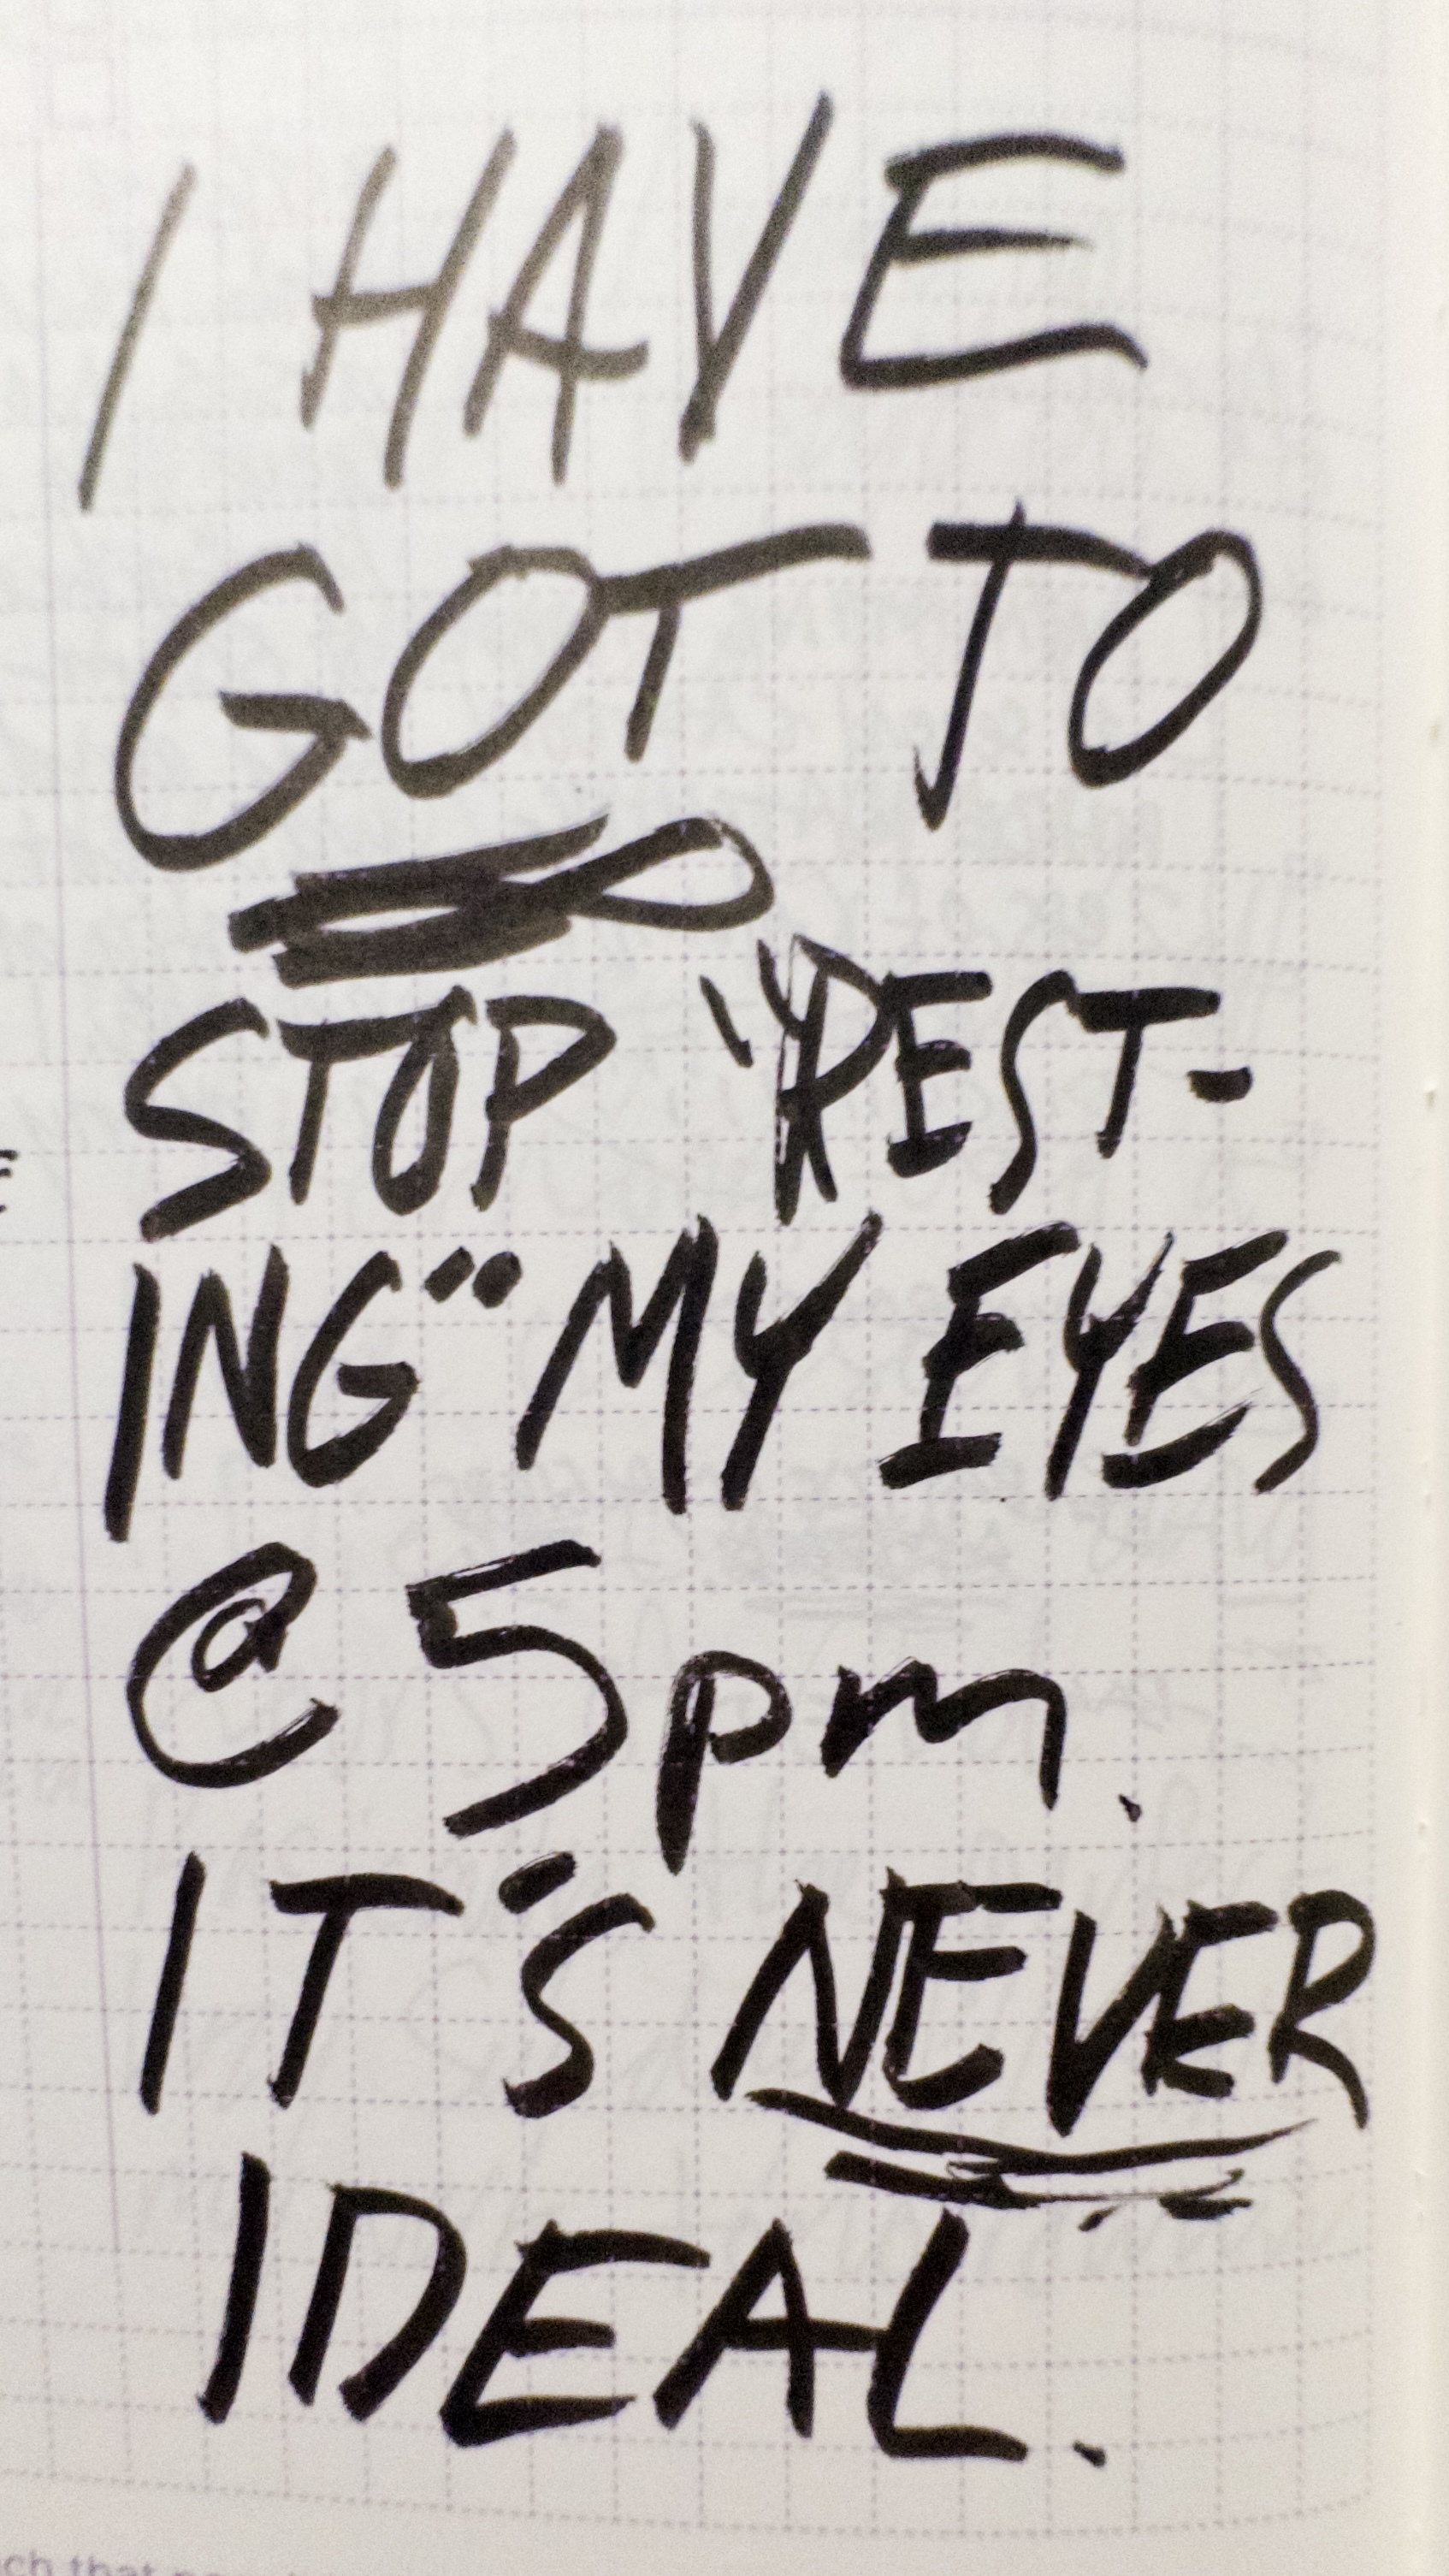 I HAVE
GOT TO
STOP "REST-
ING" MY EYES
@ 5pm.
IT'S NEVER
IDEAL.
ch that